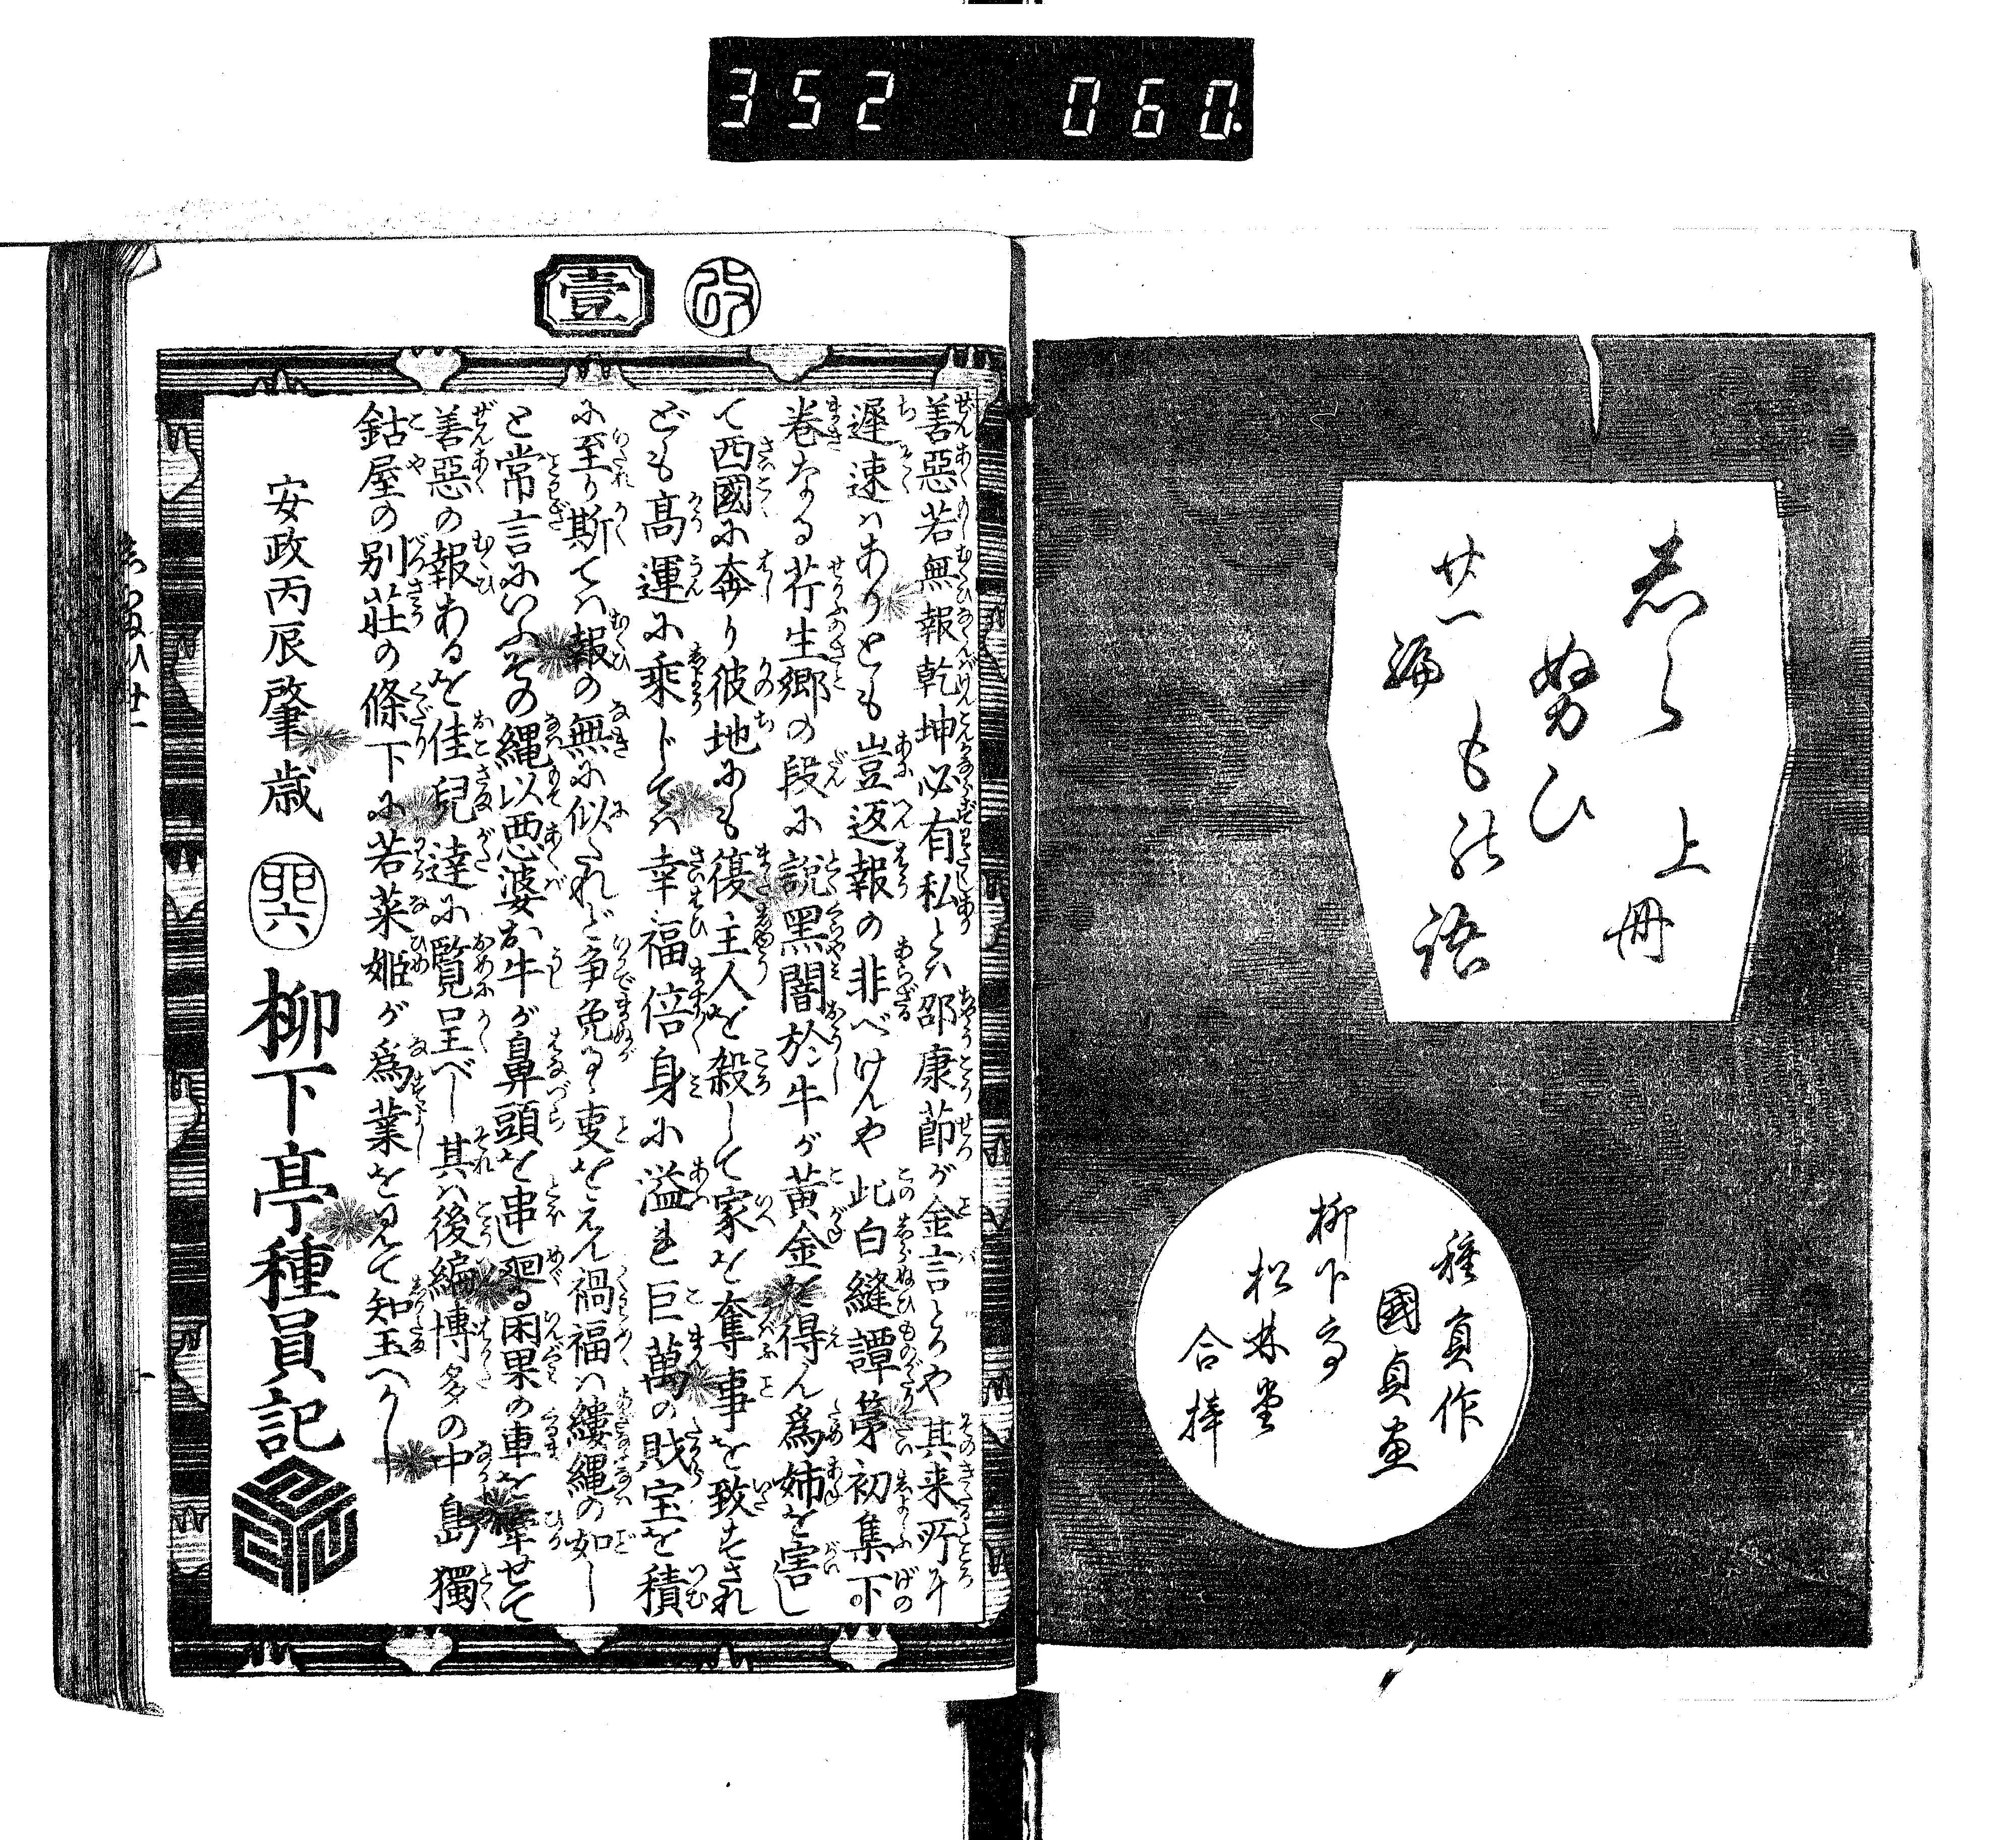 352 060.
志らぬひ
もの語
廿一編
上冊
種員作
國貞画
柳下亭
松林堂
合梓
改
壹
善惡若無報乾坤必有私とハ邵康節が金言とろや其来所に
遅速ハありとも豈返報の非べけんや此白縫譚第初集下の
巻なる芹生郷の段に説黒闇於牛が黄金を得ん為姉を害し
て西國に奔り彼地にも復主人を殺して家を奪事を致すされ
ども高運に乗じてハ幸福倍身に溢れ巨萬の財宝を積
に至り斯てハ報の無に似たれど争免るゝ叓をえん禍福ハ縷縄の如し
と常言にいふその縄以悪婆お牛が鼻頭を串し廻る因果の車を牽せて
善惡の報あるを佳兒達に覧呈べし其ハ後編博多の中島獨
鈷屋の別荘の條下に若菜姫が為業を見て知玉へかし
安政丙辰肇歳
柳下亭種員記
志らぬひ廿一